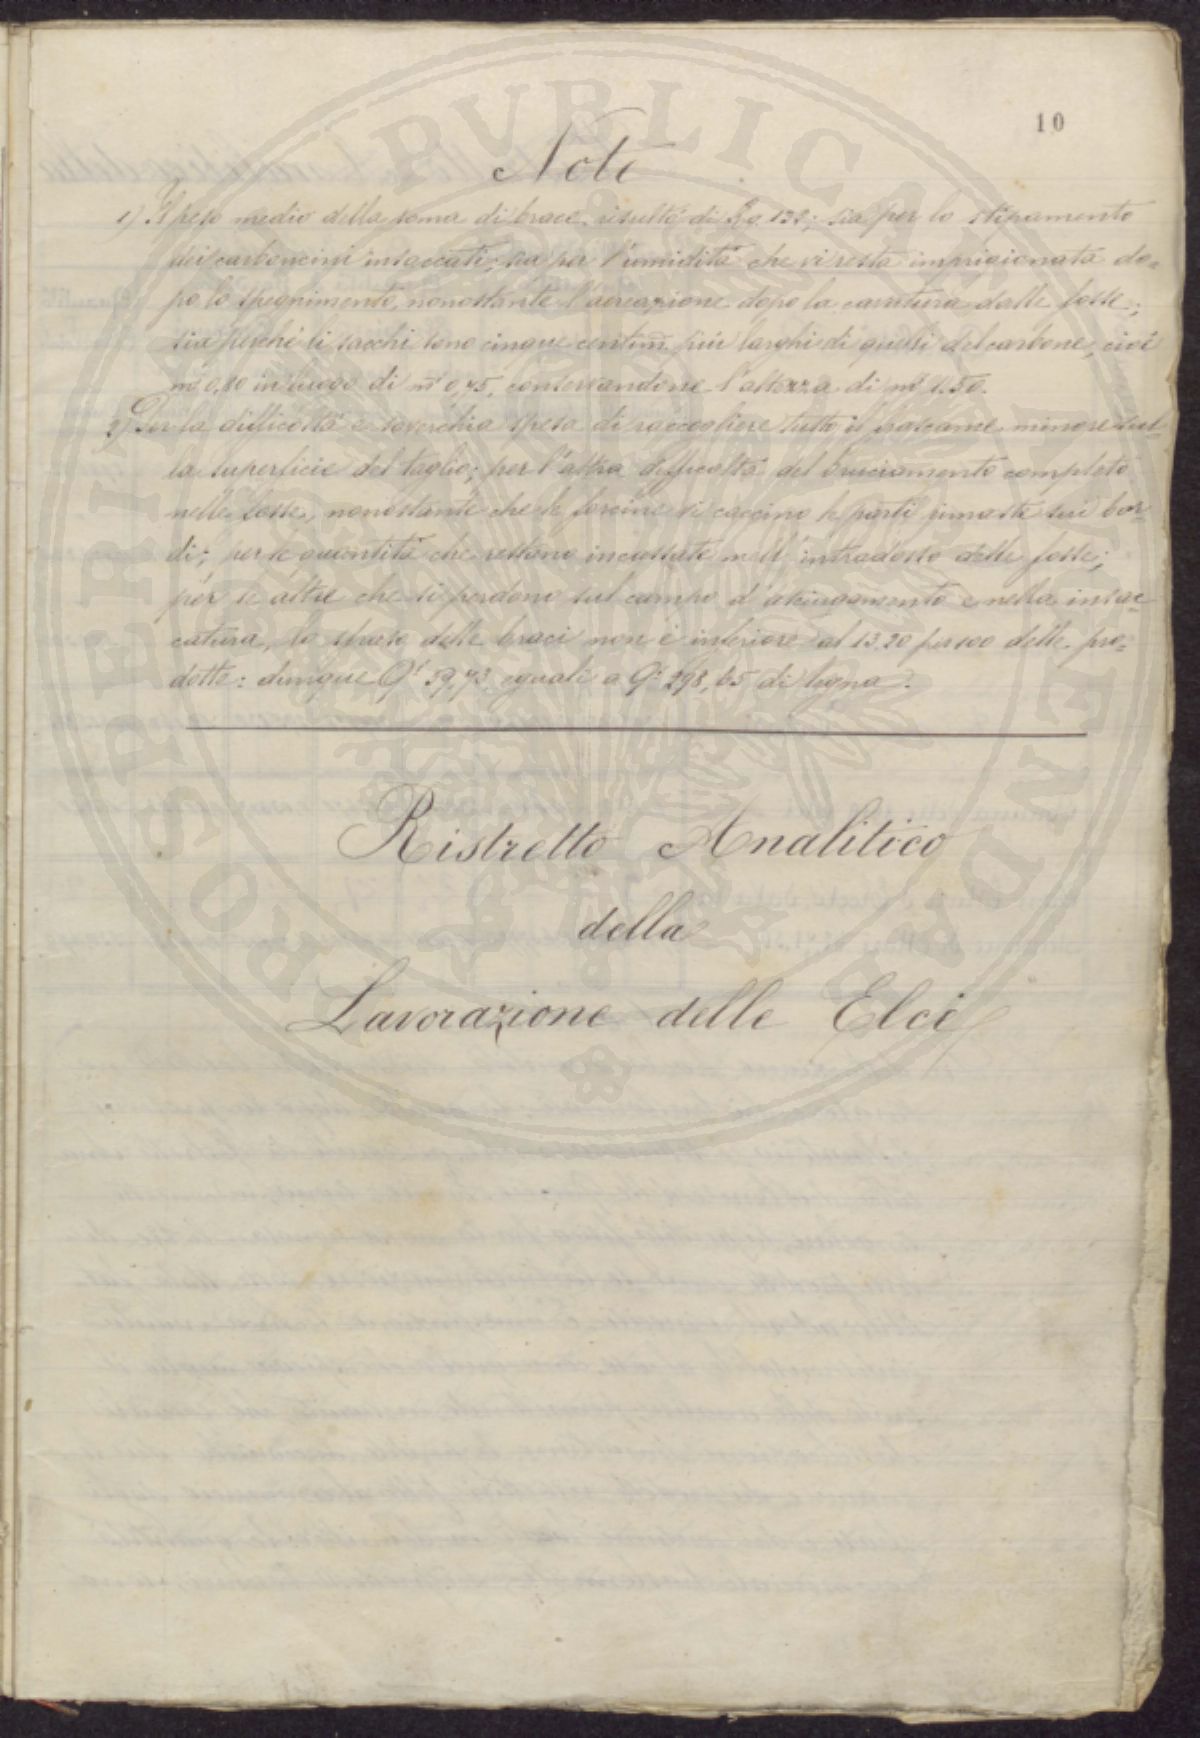 10
Note
1) Il peso medio della soma di brace risultò di Kg. 132; sia per lo stipamento
dei carboncini insaccati; sia per l'umidità che vi resta imprigionata do=
po lo spegnimento, nonostante l'aereazione dopo la cavatura dalle fosse;
sia perché i sacchi sono cinque centim. più larghi di quelli del carbone, cioè
m. 0,80 in luogo di m. 0,75, conservandone l'altezza di m. 1.50.
2) Per la difficoltà e soverchia spesa di raccogliere tutto il frascame minore sul=
la superficie del taglio; per l'altra difficoltà del bruciamento completo
nelle fosse, nonostante che le forcine vi caccino le parti rimaste sui bor=
di; per le quantità che restano incassate nell'intradosso delle fosse;
per le altre che si perdono sul campo d'asciugamento e nella insac=
catura, lo spreco delle braci non è inferiore al 13.20 per 100 delle pro=
dotte: dunque Q.li 59,73 eguali a Q.li 298,65 di legna.
Ristretto Analitico
della
Lavorazione delle Elci
PROSPERITATI PUBLICAE AVGENDAE